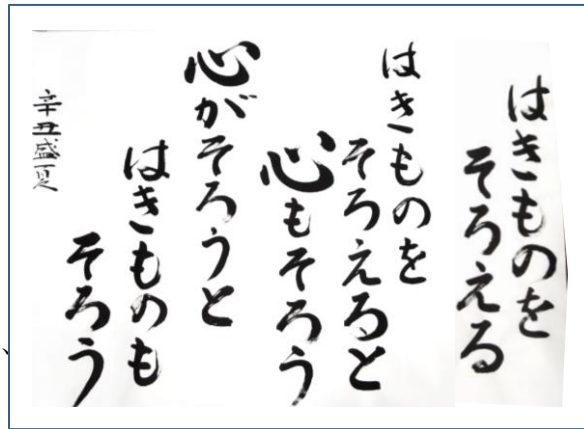 はきものを
そろえる
はきものを
そろえると
心もそろう
心がそろうと
はきものも
そろう
辛丑盛夏